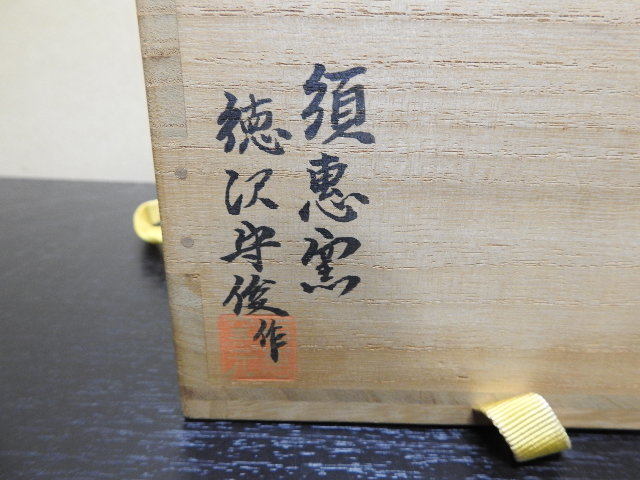 須惠窯
徳沢守俊作